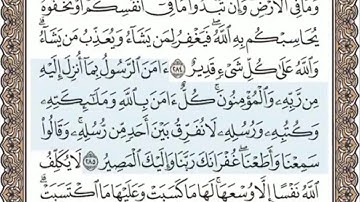 وَمَا فِي الْأَرْضِ وَإِن تُبْدُوا مَا فِي أَنفُسِكُمْ أَوْ تُخْفُوهُ
يُحَاسِبْكُم بِهِ اللَّهُ فَيَغْفِرُ لِمَن يَشَاءُ وَيُعَذِّبُ مَن يَشَاءُ
وَاللَّهُ عَلَىٰ كُلِّ شَيْءٍ قَدِيرٌ ٢٨٤ ءَامَنَ الرَّسُولُ بِمَا أُنزِلَ إِلَيْهِ
مِن رَّبِّهِ وَالْمُؤْمِنُونَ كُلٌّ ءَامَنَ بِاللَّهِ وَمَلَائِكَتِهِ
وَكُتُبِهِ وَرُسُلِهِ لَا نُفَرِّقُ بَيْنَ أَحَدٍ مِّن رُّسُلِهِ وَقَالُوا
سَمِعْنَا وَأَطَعْنَا غُفْرَانَكَ رَبَّنَا وَإِلَيْكَ الْمَصِيرُ ٢٨٥ لَا يُكَلِّفُ
اللَّهُ نَفْسًا إِلَّا وُسْعَهَا لَهَا مَا كَسَبَتْ وَعَلَيْهَا مَا اكْتَسَبَتْ